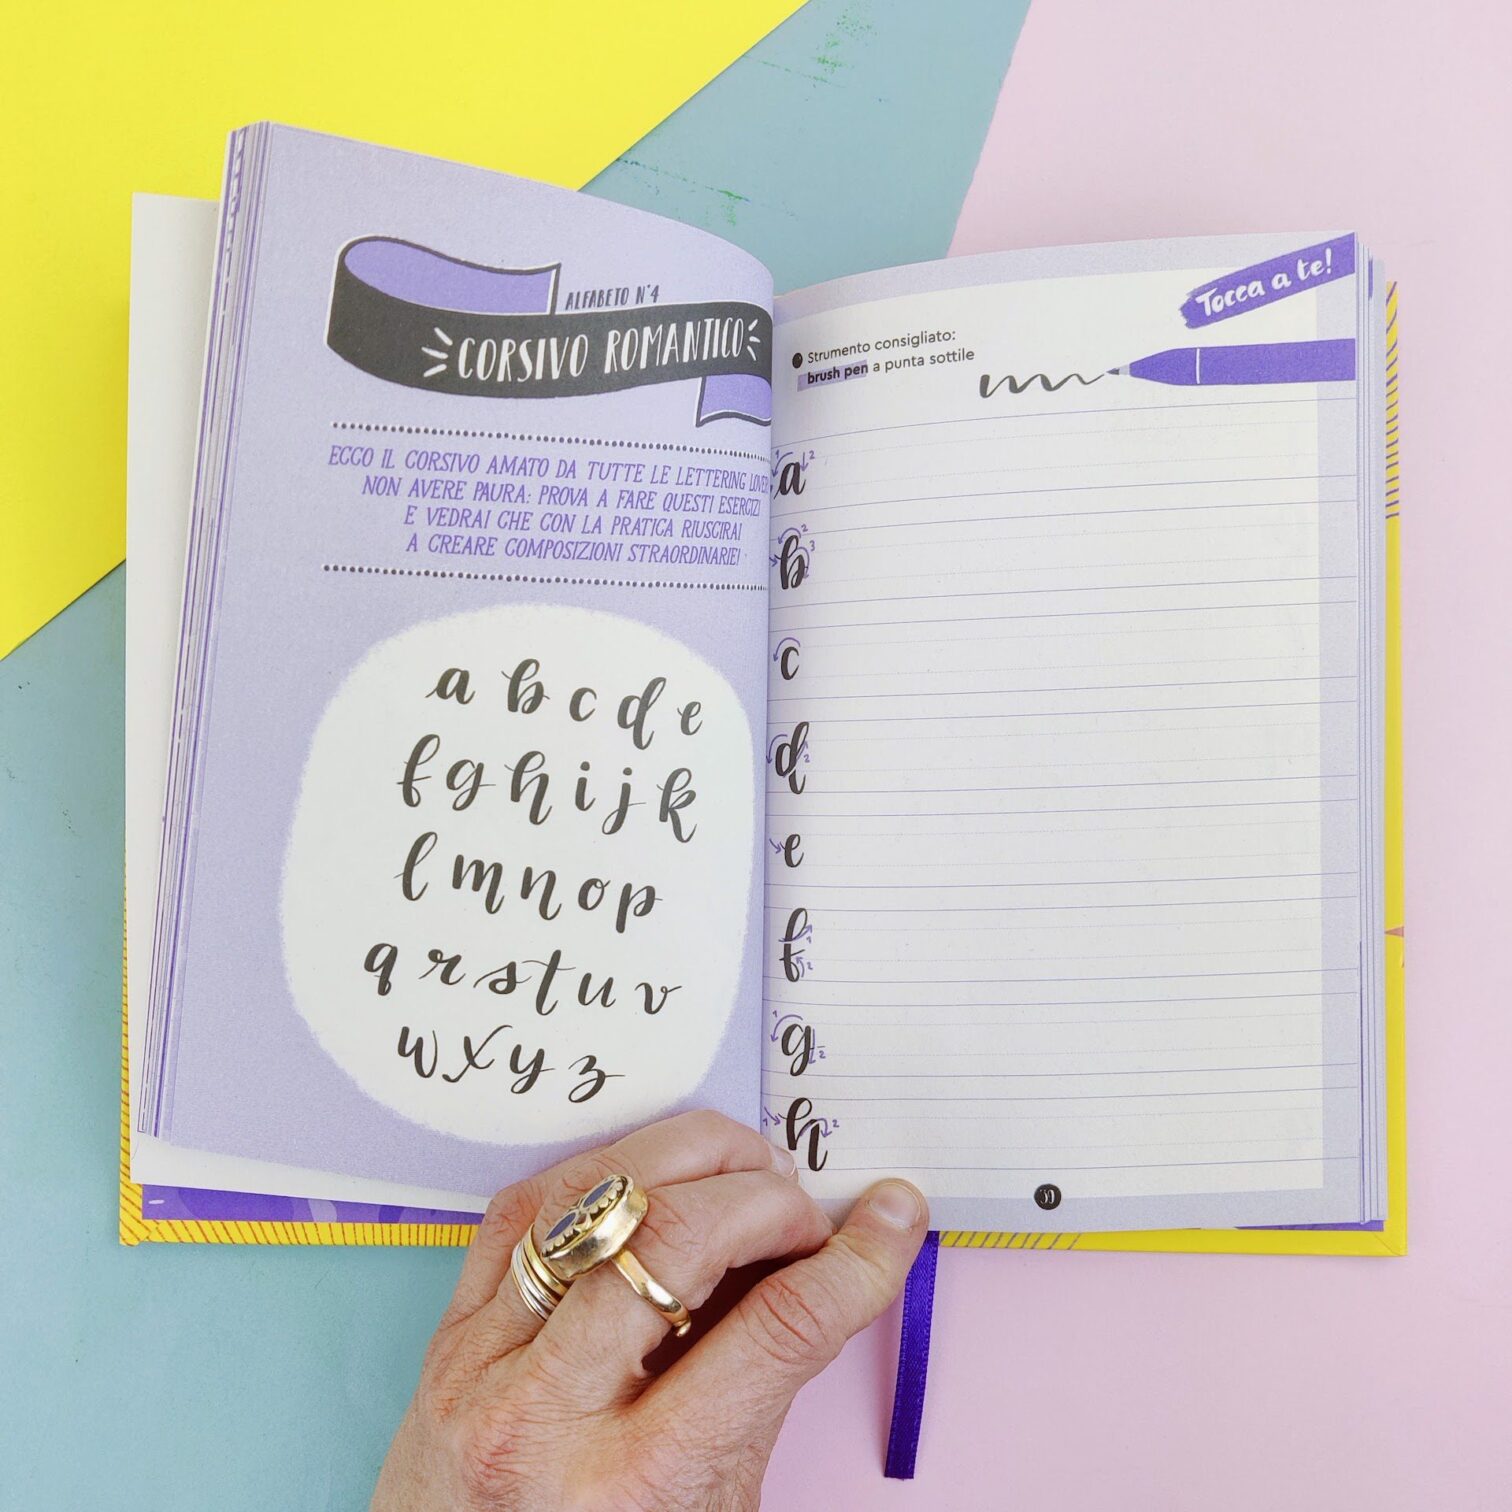 ALFABETO N°4
CORSIVO ROMANTICO
ECCO IL CORSIVO AMATO DA TUTTE LE LETTERING
NON AVERE PAURA: PROVA A FARE QUESTI ESERCIZI
E VEDRAI CHE CON LA PRATICA RIUSCIRAI
A CREARE COMPOSIZIONI STRAORDINARIE!
a b c d e
f g h i j k
l m n o p
q r s t u v
w x y z
Tocca a te!
Strumento consigliato:
brush pen a punta sottile
1 a 2
b 2 3
c
d 2
e
f 1 2
1 g 2
1 h 2